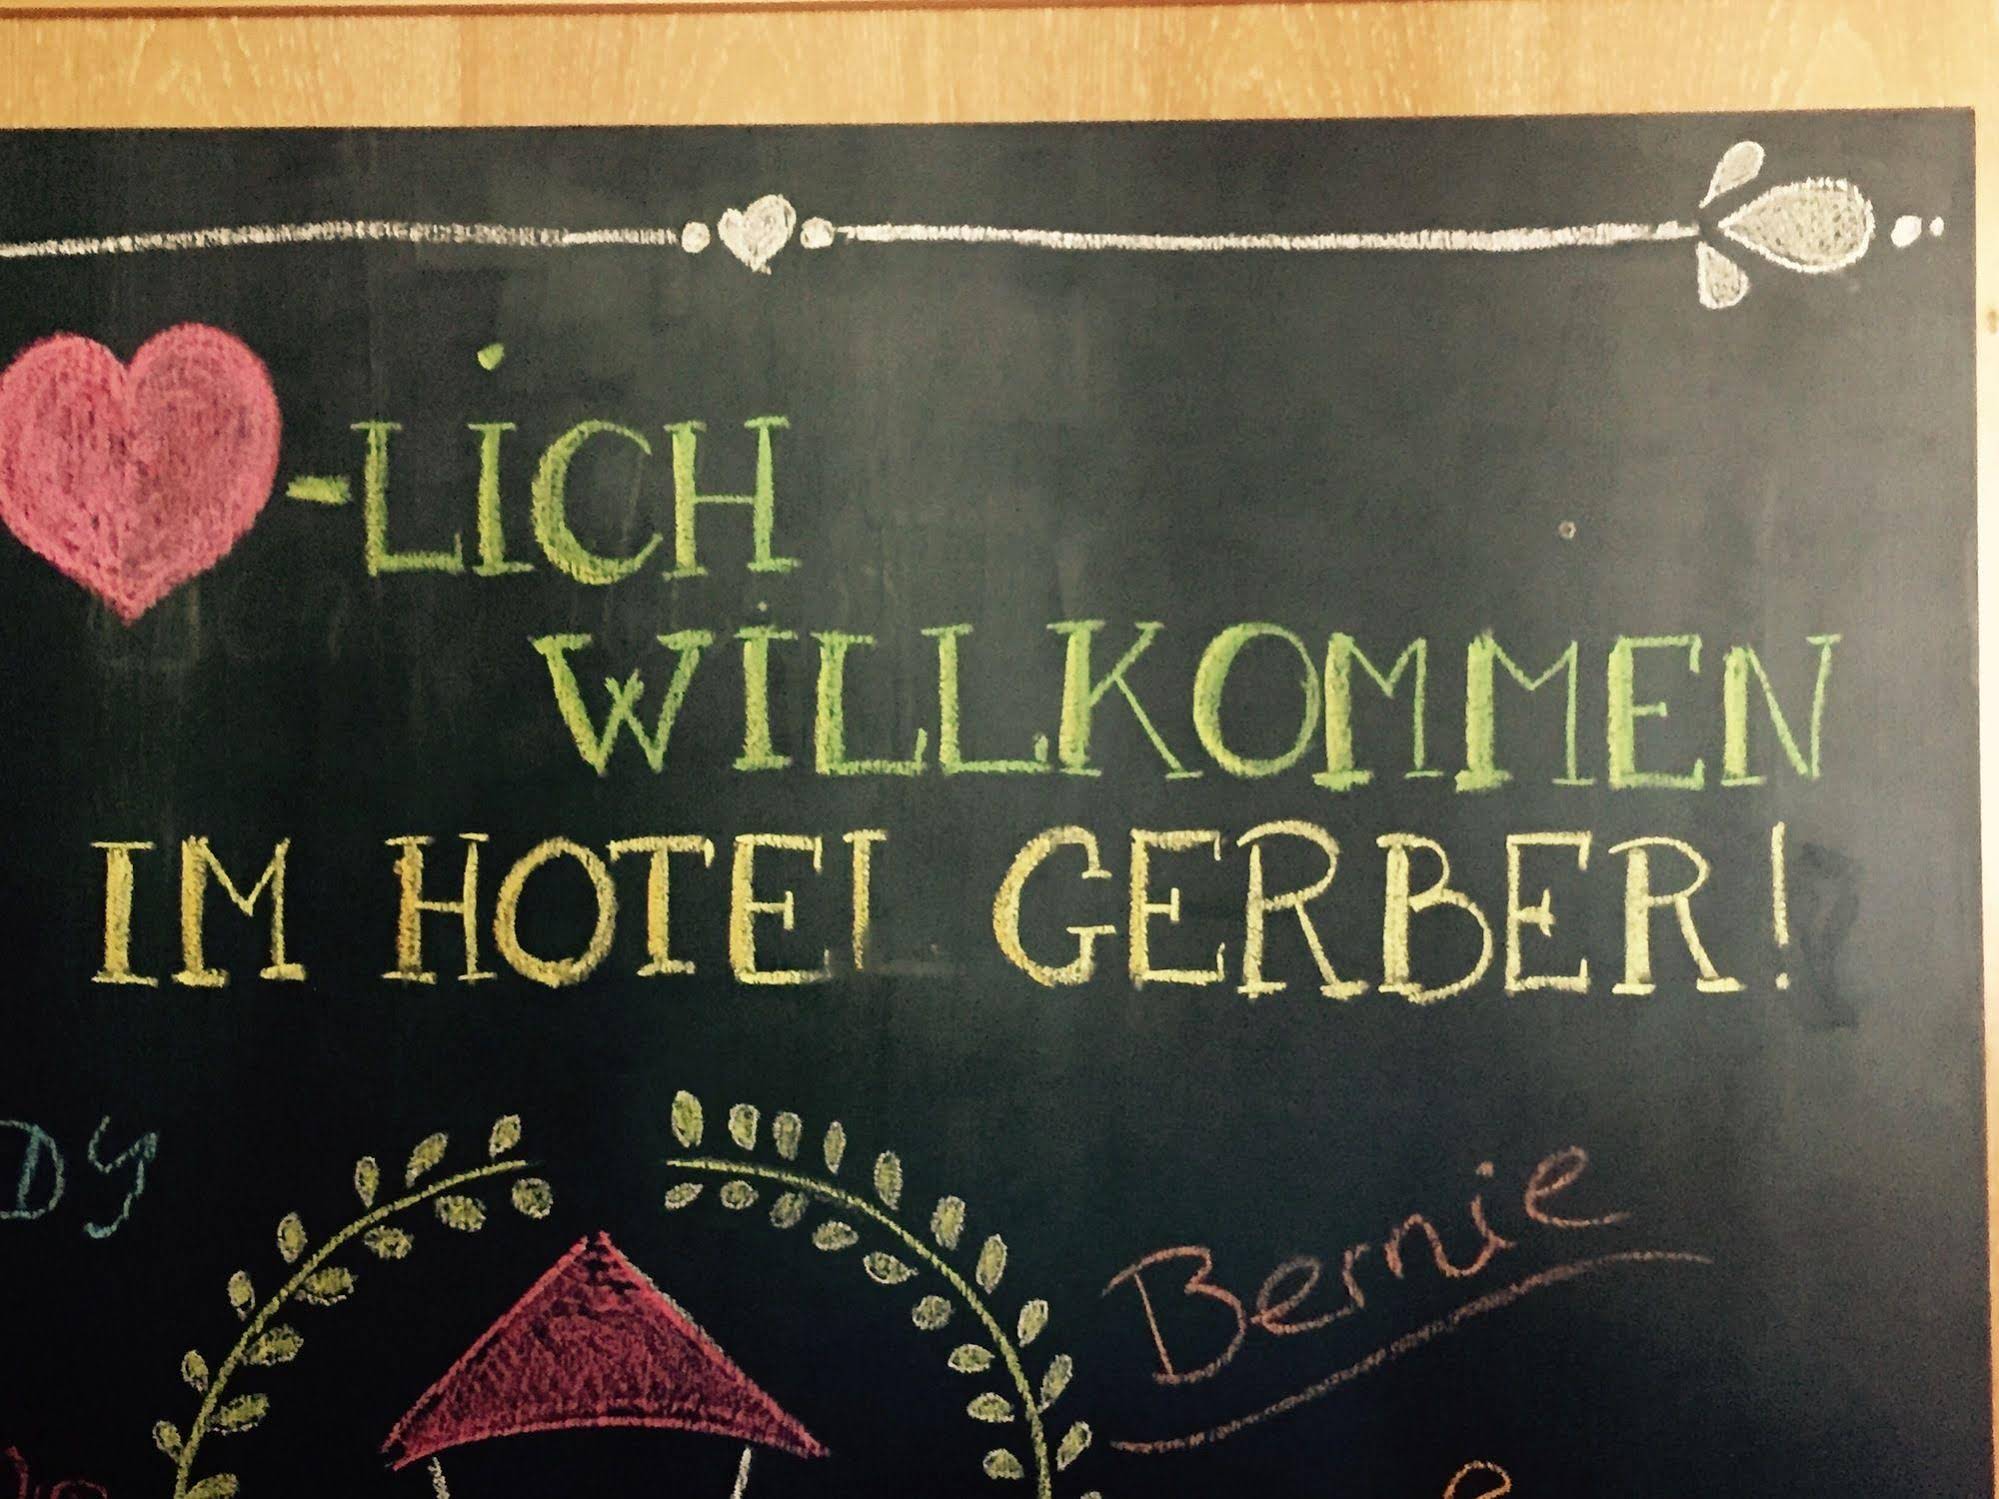 -LiCH
WiLLKOMMEN
IM HOTEL GERBER!
DY
Bernie